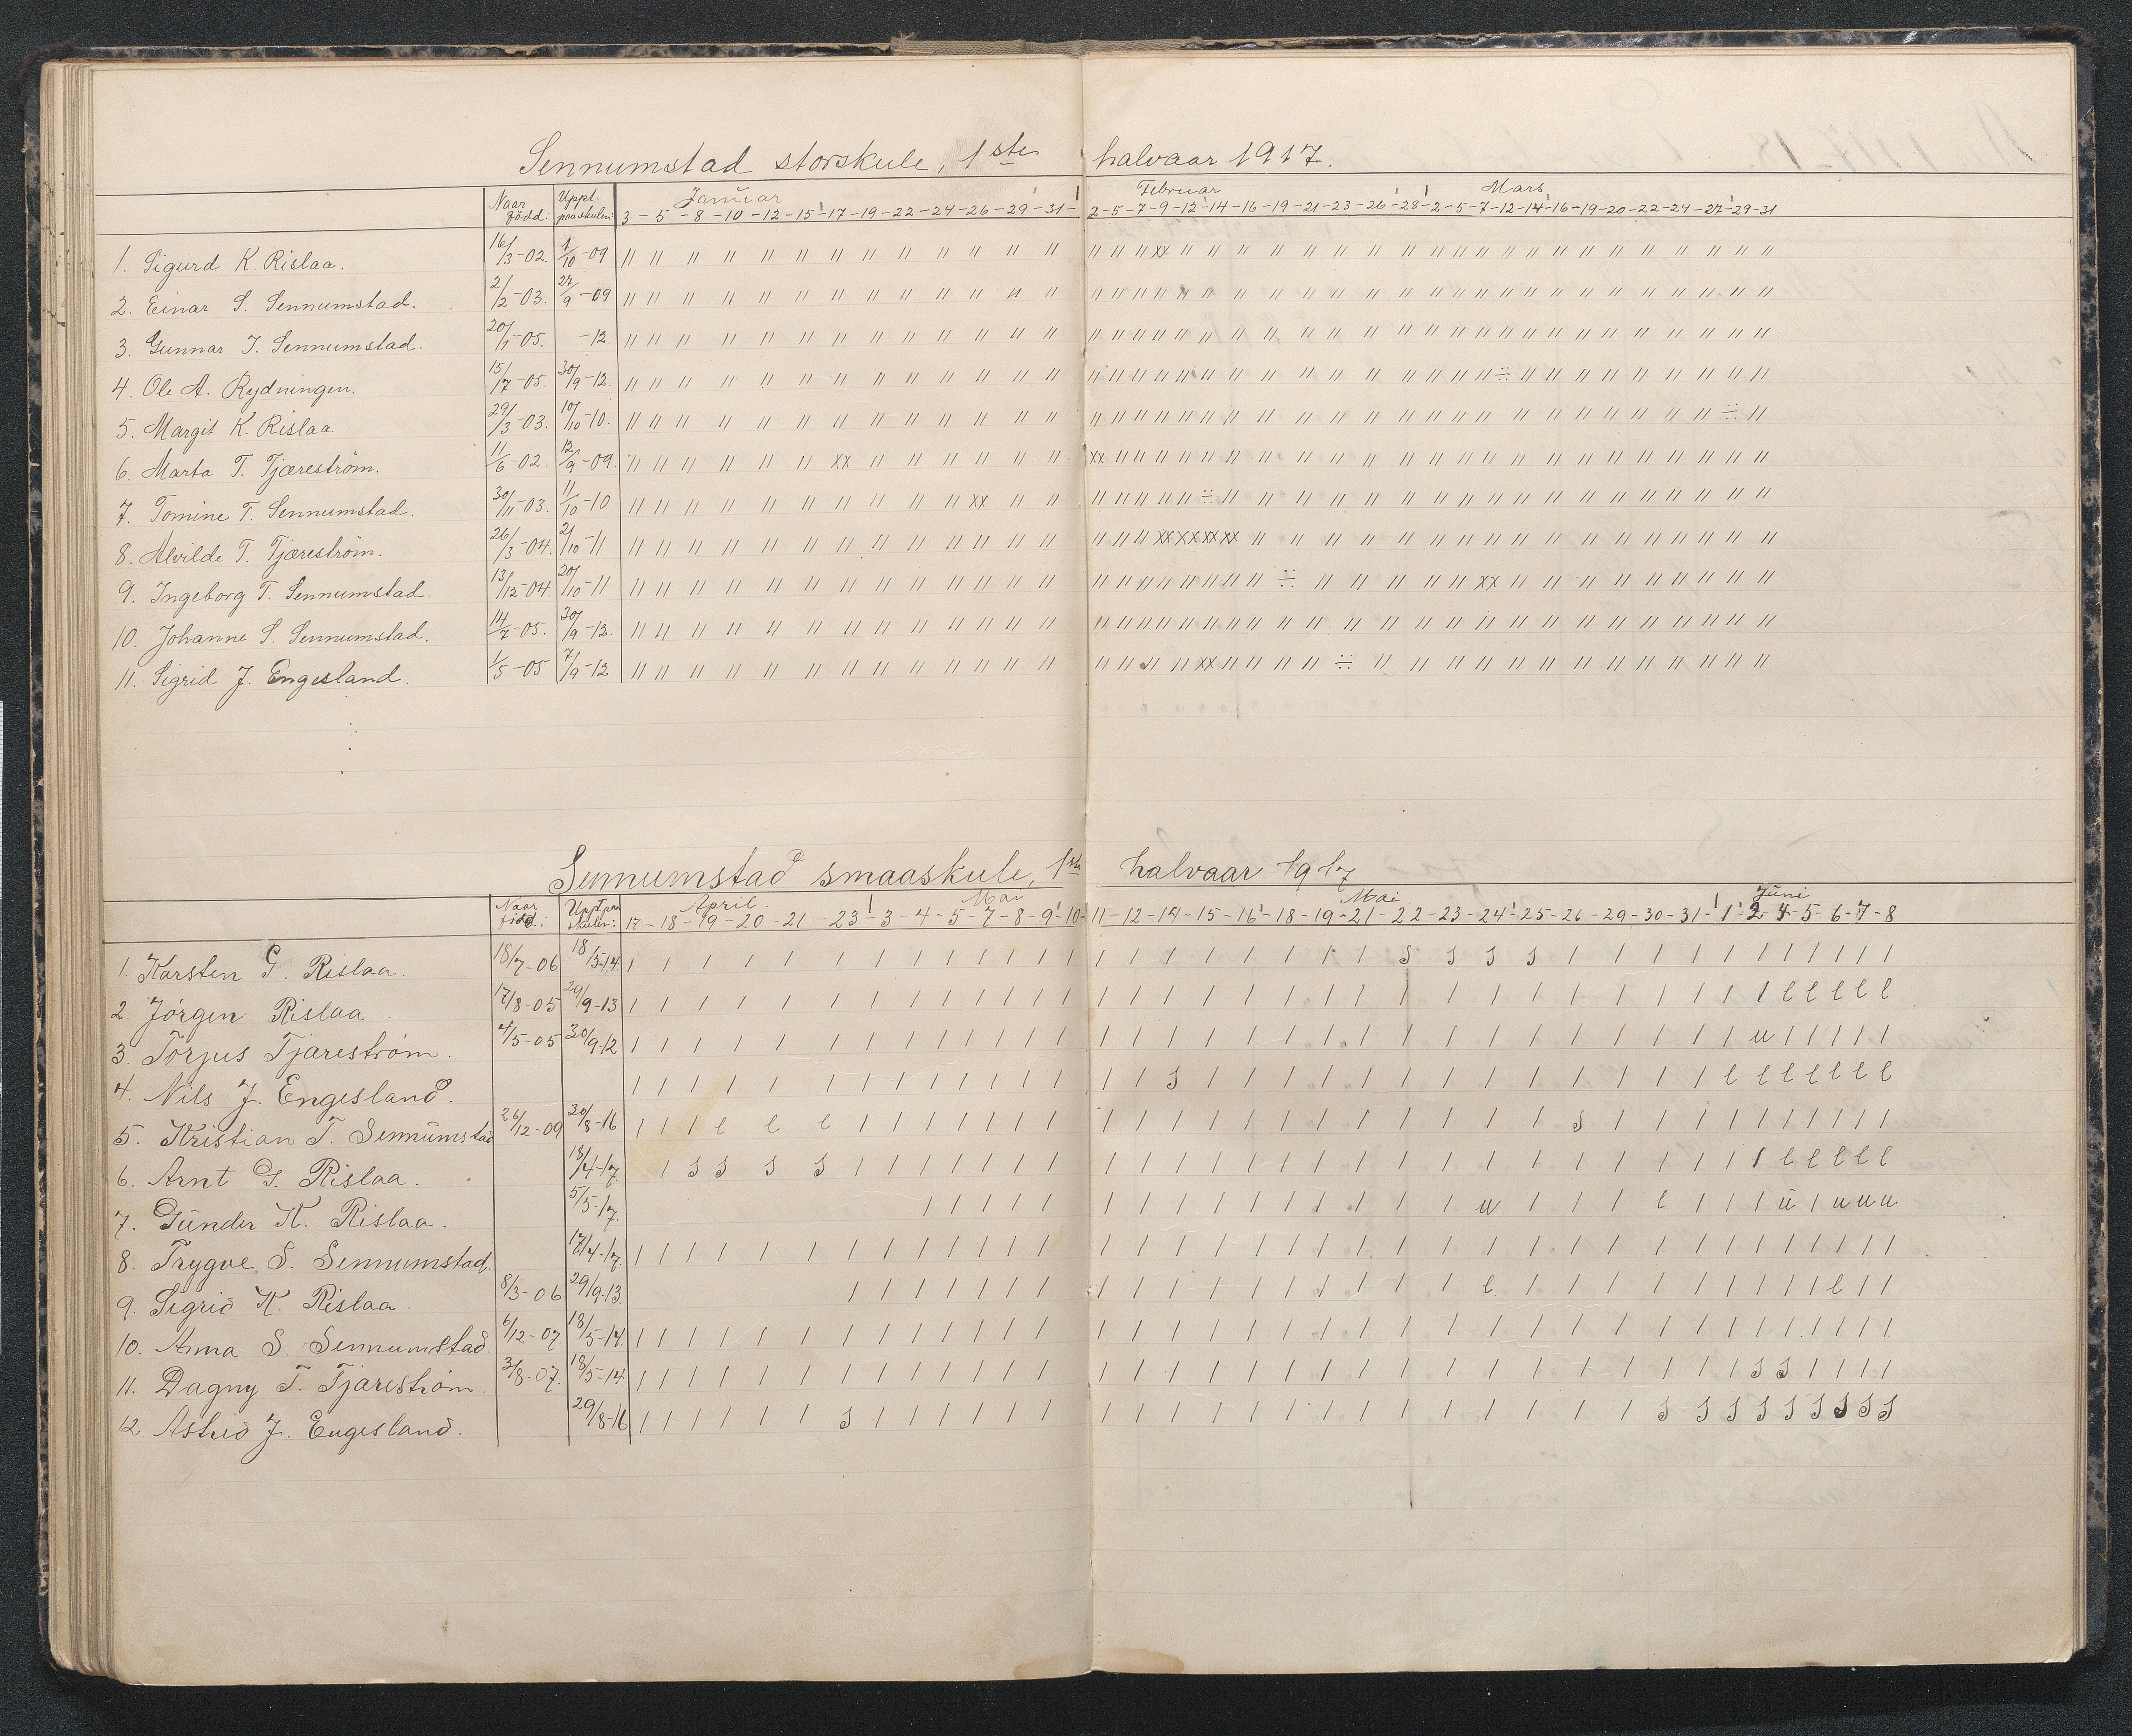 Sennumstad storskule, 1ste halvaar 1917.
Naar född: Uppt. paa skulen: Januar Februar Mars
3 - 5 - 8 - 10 - 12 - 15 - 17 - 19 - 22 - 24 - 26 - 29 - 31 - 2 - 5 - 7 - 9 - 12 - 14 - 16 - 19 - 21 - 23 - 26 - 28 - 2 - 5 - 7 - 12 - 14 - 16 - 19 - 20 - 22 - 24 - 27 - 29 - 31
1. Sigurd K. Rislaa. 16/3-02. 1/10-09
2. Einar S. Sennumstad. 2/2-03. 27/9-09
3. Gunnar T. Sennumstad. 20/1-05. -12.
4. Ole A. Rydningen. 15/7-05. 30/9-12.
5. Margit K. Rislaa. 29/3-03. 10/10-10.
6. Marta T. Tjæreström. 11/6-02. 12/9-09.
7. Tomine T. Sennumstad. 30/11-03. 11/10-10
8. Alvilde T. Tjæreström. 26/3-04. 2/10-11
9. Ingeborg T. Sennumstad. 13/12-04. 20/10-11
10. Johanne S. Sennumstad. 14/7-05. 30/9-12.
11. Sigrid J. Engesland. 1/5-05 7/9-12
Sennumstad smaaskule, 1ste halvaar 1917
Naar född: Uppt. paa skulen: April Mai Mai Juni
17 - 18 - 19 - 20 - 21 - 23 - 3 - 4 - 5 - 7 - 8 - 9 - 10 - 11 - 12 - 14 - 15 - 16 - 18 - 19 - 21 - 22 - 23 - 24 - 25 - 26 - 29 - 30 - 31 - 1 - 2 - 4 - 5 - 6 - 7 - 8
1. Karsten G. Rislaa. 18/7-06 18/5-14.
2. Jörgen Rislaa 17/8-05 29/9-13
3. Torjus Tjæreström. 4/5-05 30/9-12
4. Nils J. Engesland.
5. Kristian T. Sennumstad 26/12-09 30/8-16
6. Arnt G. Rislaa. 18/4-17.
7. Gunder K. Rislaa. 5/5-17.
8. Trygve S. Sennumstad. 17/4-17.
9. Sigrid K. Rislaa. 8/3-06 29/9-13.
10. Anna S. Sennumstad. 6/12-07 18/5-14.
11. Dagny T. Tjæreström. 3/8-07. 18/5-14.
12. Astrid J. Engesland. 29/8-16